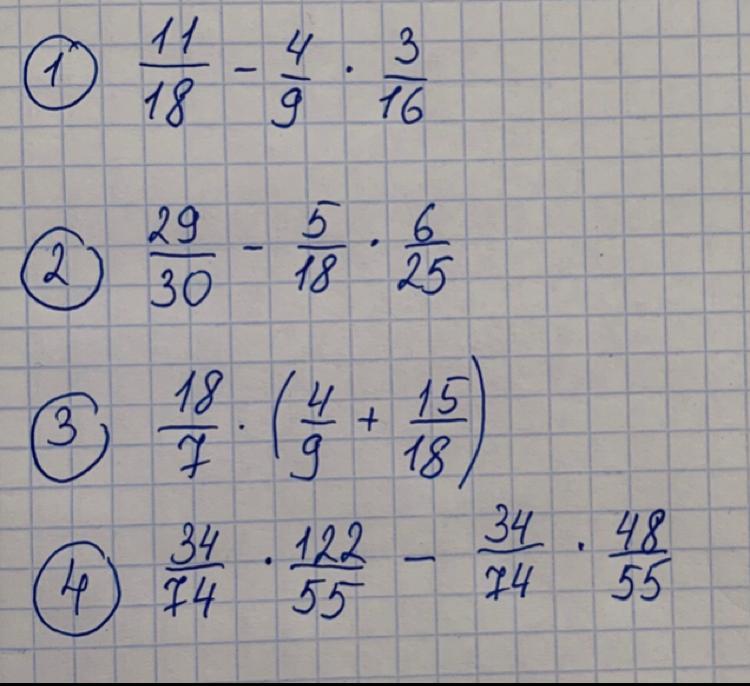 ① 11/18 - 4/9 · 3/16
② 29/30 - 5/18 · 6/25
③ 18/7 · (4/9 + 15/18)
④ 34/74 · 122/55 - 34/74 · 48/55